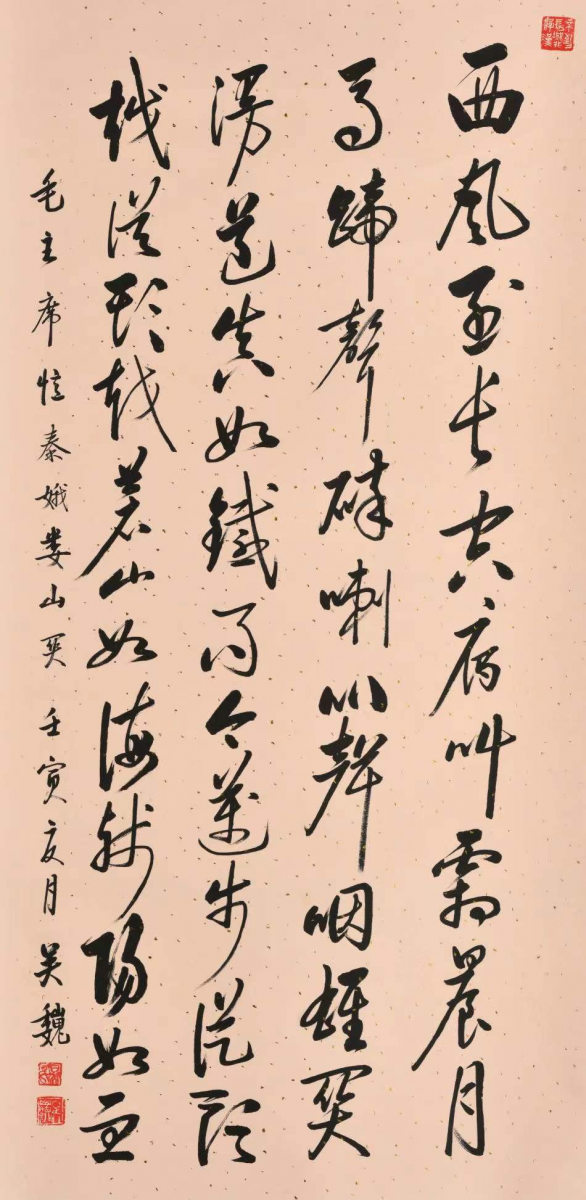 西風烈長空雁叫霜晨月
馬蹄聲碎喇叭聲咽雄關
漫道真如鐵而今邁步從頭
越從頭越蒼山如海殘陽如血
毛主席憶秦娥婁山關 壬寅夏月 吴魏